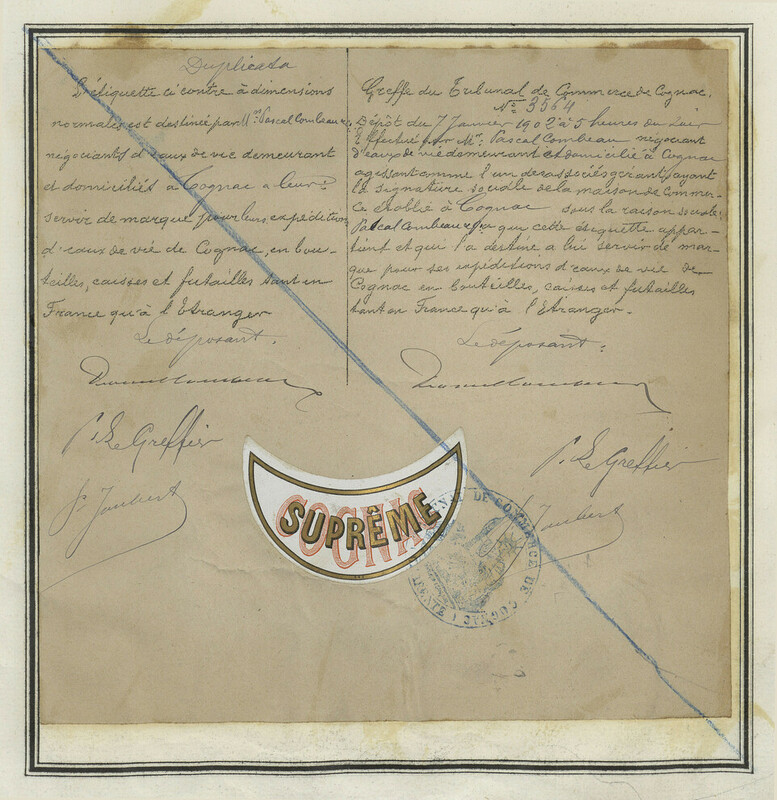 Duplicata
L'étiquette ci contre à dimensions
normales est destinée par Mrs Pascal Combeau & Cie
négociants d'eaux de vie demeurant
et domiciliés à Cognac a leur
servir de marque pour leurs expéditions
d'eaux de vie de Cognac, en bou-
teilles, caisses et futailles tant en
France qu'à l'Etranger
Le déposant.
P. Le Greffier
Joubert
Greffe du Tribunal de Commerce de Cognac.
No 3564
Dépôt du 7 Janvier 1902 à 5 heures du soir
Effectué par Mr. Pascal Combeau négociant
d'eaux de vie demeurant et domicilié à Cognac
agissant comme l'un des associés gérants, ayant
la signature sociale de la maison de commer-
ce établie à Cognac sous la raison sociale
Pascal Combeau & Cie que cette étiquette appar-
tient et qui l'a destine a lui servir de mar-
que pour ses expéditions d'eaux de vie de
Cognac en bouteilles, caisses et futailles
tant en France qu'à l'Etranger.
Le déposant.
P. Le Greffier
Joubert
COGNAC
SUPRÊME
TRIBUNAL DE COMMERCE DE COGNAC